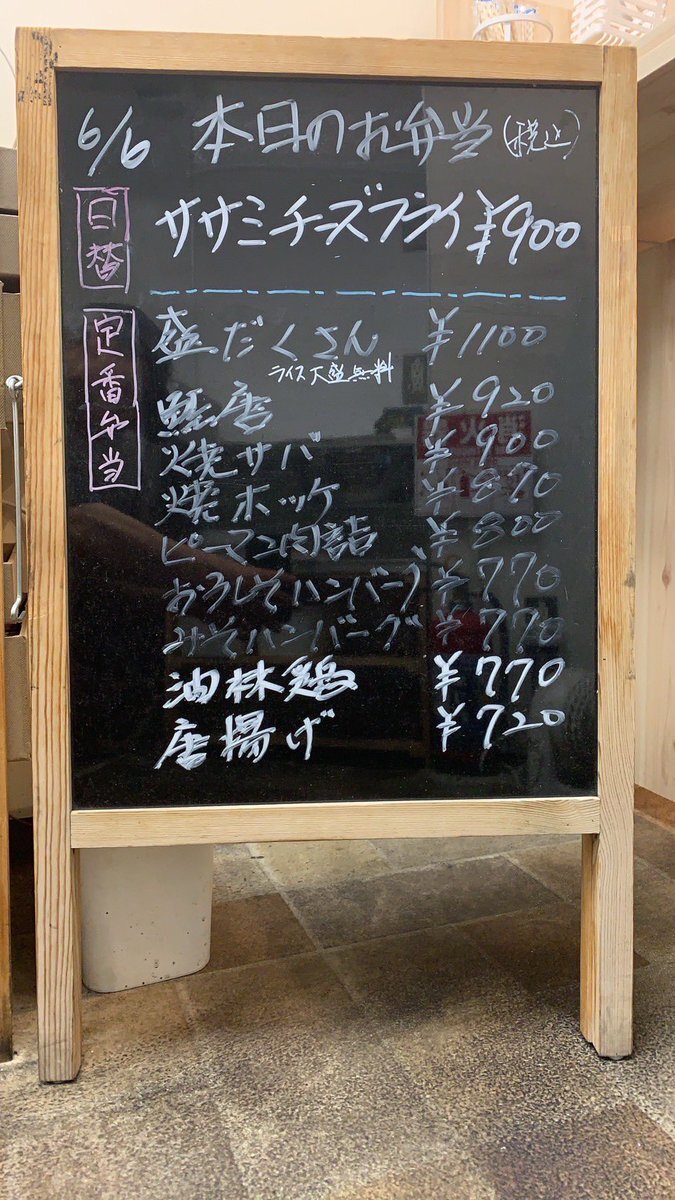 6/6 本日のお弁当(税込)
日替 ササミチーズフライ ¥900
定番弁当
盛だくさん ¥1100
ライス大盛無料
鮭唐 ¥920
焼サバ ¥900
焼ホッケ ¥870
ピーマン肉詰 ¥800
おろしそハンバーグ ¥770
みそハンバーグ ¥770
油林鶏 ¥770
唐揚げ ¥720